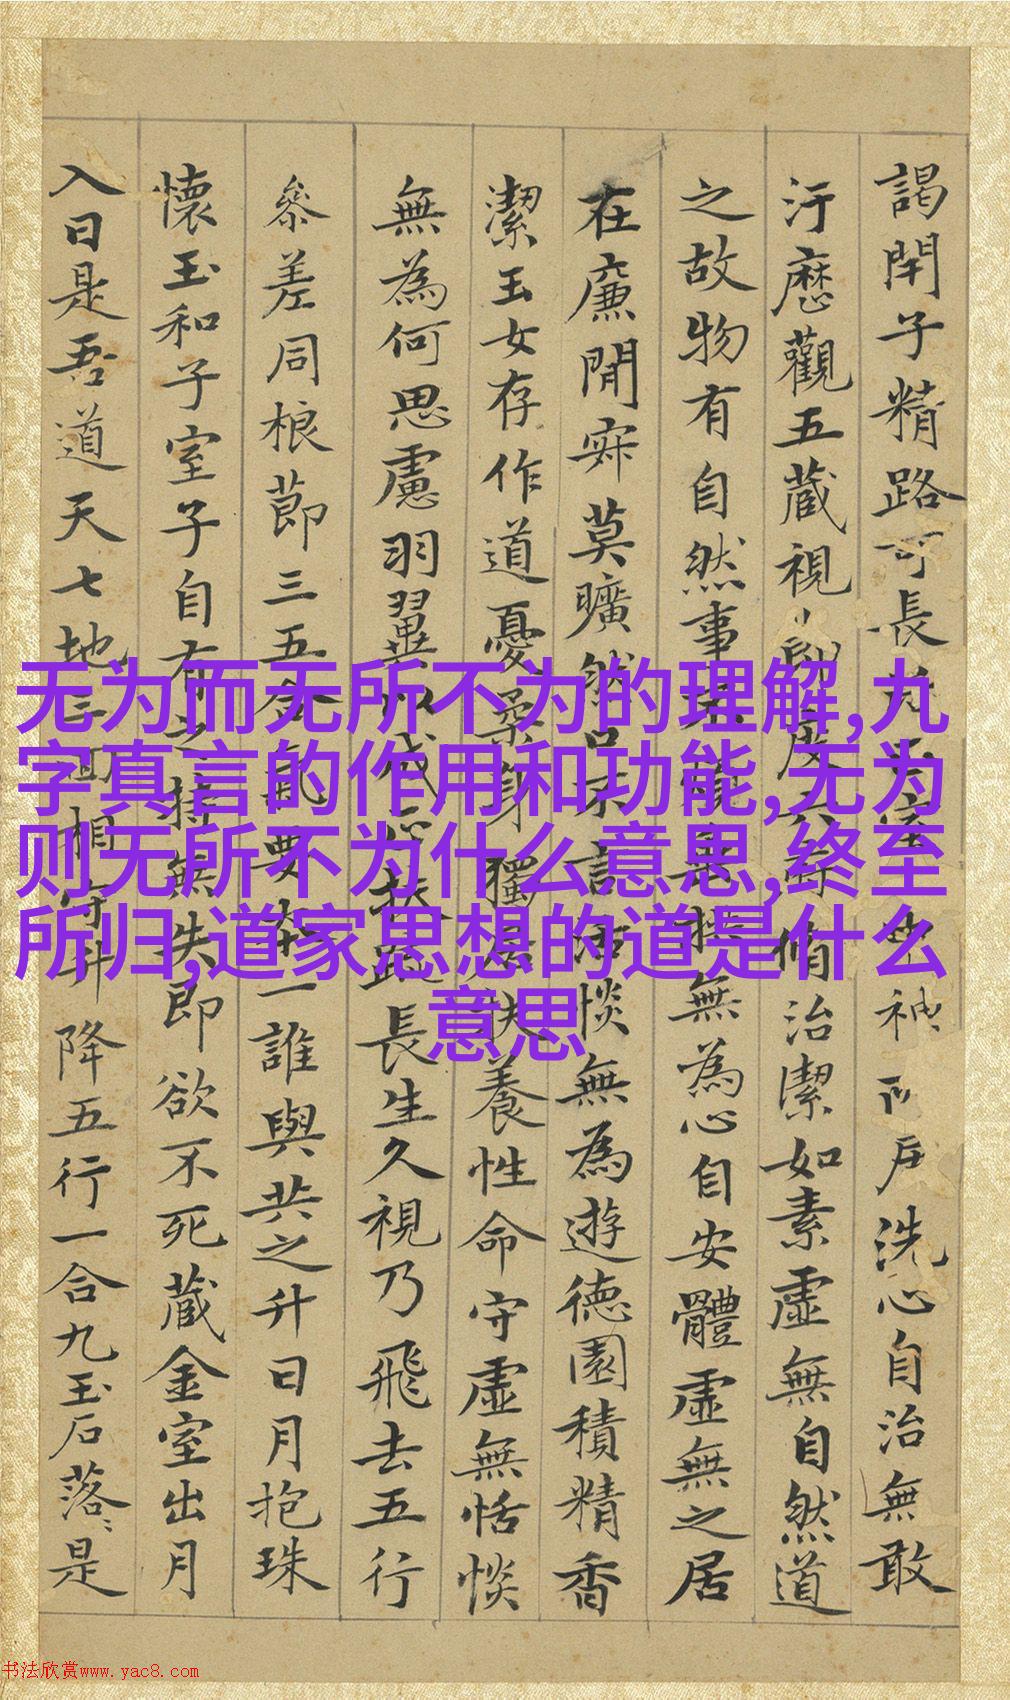 謁閇子精路可長 洗心自治無敢
汙歷觀五藏視 脩治潔如素虛無自然道
之故物有自然事 無為心自安體虛無之居
在廉閒寂莫曠然口不言 恬惔無為遊德園積精香
潔玉女存作道憂柔身獨居扶養性命守虛無恬惔
無為何思慮羽翼以成正扶踈長生久視乃飛去五行
參差同根莭三五合氣要本一誰與共之升日月抱珠
懷玉和子室子自有之持無失即欲不死藏金室出月
入日是吾道天七地三回相守升降五行一合九玉石落〻是
无为而无所不为的理解,九
字真言的作用和功能,无为
则无所不为什么意思,终至
所归,道家思想的道是什么
意思
书法欣赏www.yac8.com